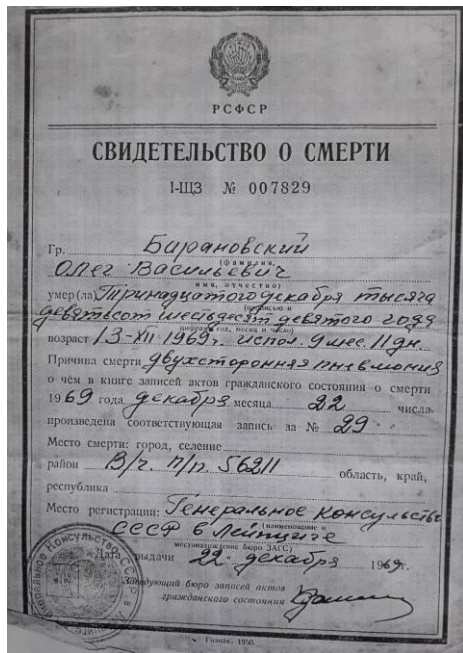 РСФСР
СВИДЕТЕЛЬСТВО О СМЕРТИ
I-ЩЗ № 007829
Гр. Барановский
(фамилия,
Олег Васильевич
имя, отчество)
умер(ла) Тринадцатого декабря тысяча
(прописью и
девятьсот шестьдесят девятого года
цифрами год, месяц и число)
возраст 13-XII-1969г. испол. 9 мес. 11 дн.
Причина смерти двухсторонняя пневмония
о чём в книге записей актов гражданского состояния о смерти
1969 года декабря месяца 22 числа
произведена соответствующая запись за № 29
Место смерти: город, селение
район В/ч. п/п. 56211 область, край,
республика
Место регистрации: Генеральное консульство
(наименование и
СССР в Лейпциге
местонахождение бюро ЗАГС)
Дата выдачи 22 декабря 1969г.
Заведующий бюро записей актов
гражданского состояния
Гознак. 1950.
Генеральное Консульство СССР в